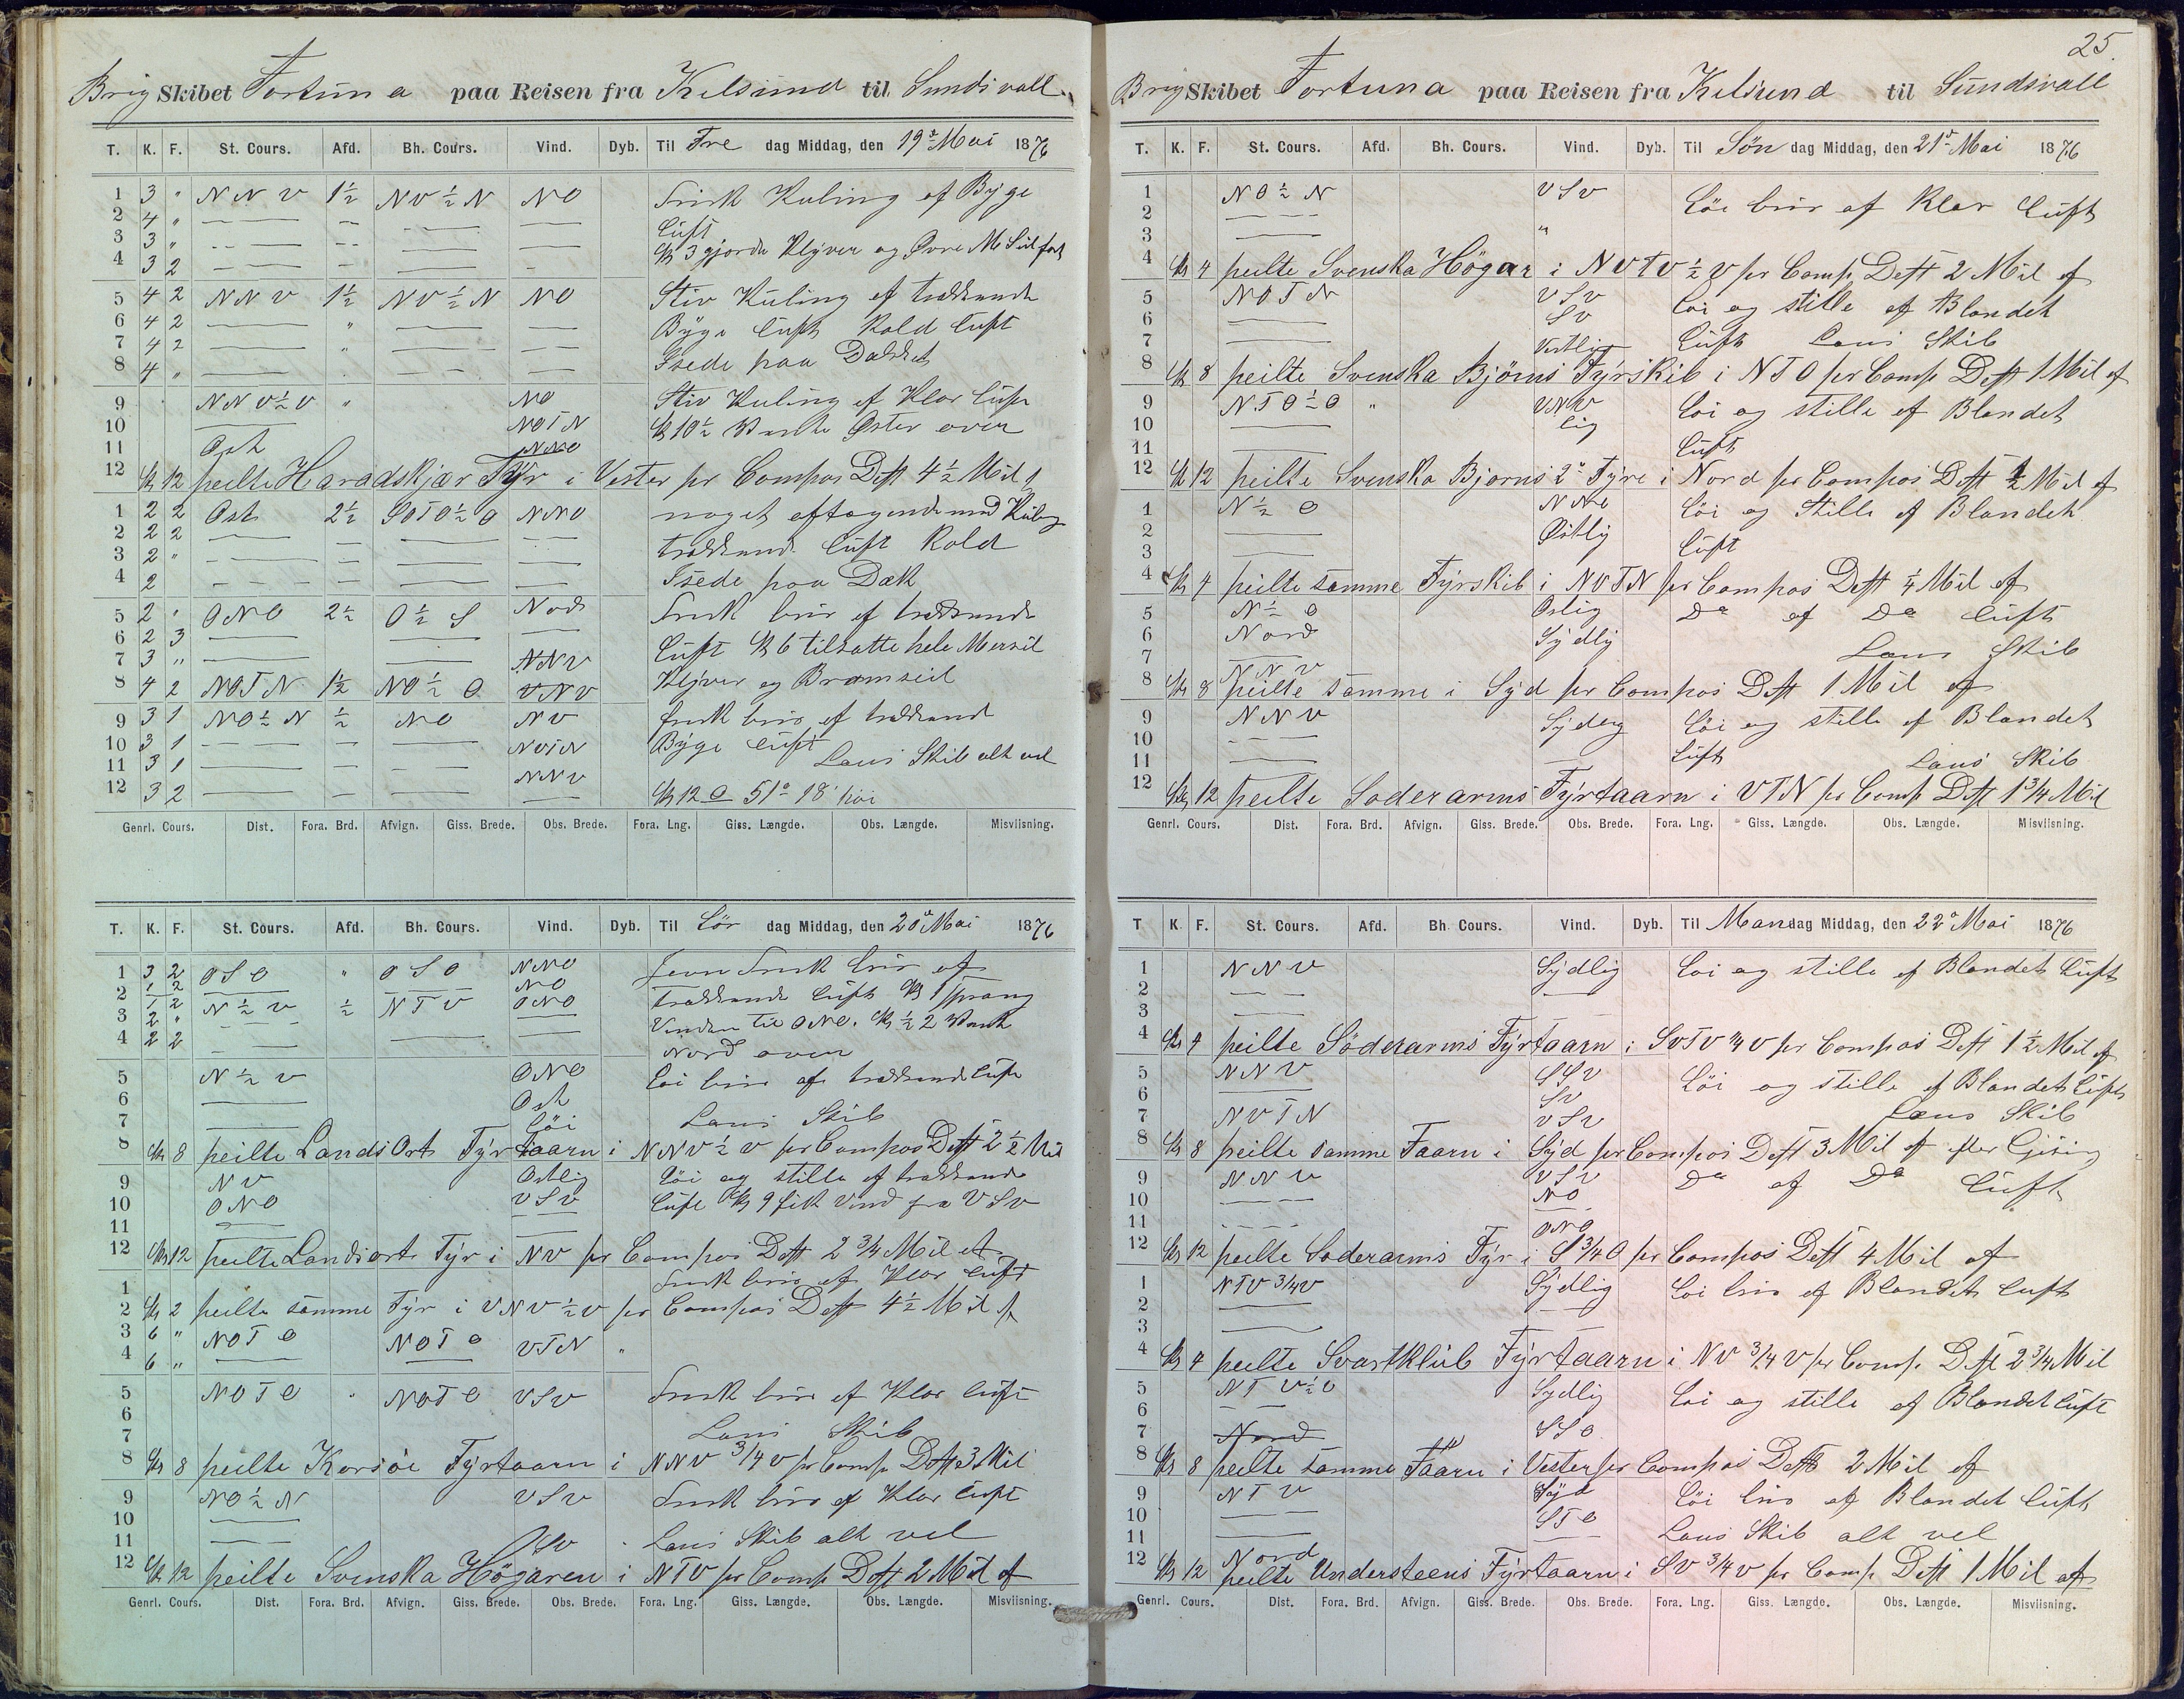 Brig Skibet Fortuna paa Reisen fra Kelsund til Sundsvall
T. K. F. St. Cours. Afd. Bh. Cours. Vind. Dyb. Til Fre dag Middag, den 19de Mai 1876
1 3 " NNV 1½ NV½N NO Frisk Kuling af Byge
2 4 " Luft
3 3 " Kl 3 gjorde Klyver og Øvre M Seil fast
4 3 2
5 4 2 NNV 1½ NV½N NO Stiv Kuling af trækkende
6 4 2 " Byge Luft Kold Luft
7 4 2 " Isede paa Dækket
8 4 "
9 NNV½V " NO Stiv Kuling af Klar Luft
10 NOTN Kl 10½ Vente Øster over
11 Ost NNO
12 Kl 12 peilte Haradskjær Fyr i Vester pr Compas Dest 4½ Mil
1 2 2 Ost 2½ SOTO½O NNO noget aftagende med Kuling
2 2 2 trækkende Luft Kold
3 2 " Isede paa Dæk
4 2
5 2 " ONO 2½ O½S Nord Frisk bris af trækkende
6 2 3 Luft Kl 6 tilsatte hele Mersseil
7 3 " NNV Klyver og Bramseil
8 4 2 NOTN 1½ NO½O VNV
9 3 1 NO½N ½ NO NV frisk bris af trækkend
10 3 1 NVTN Byge Luft
11 3 1 NNV Lens Skib alt vel
12 3 2 Kl 12 O 51° 18' høi
Genrl. Cours. Dist. Fora. Brd. Afvign. Giss. Brede. Obs. Brede. Fora. Lng. Giss. Længde. Obs. Længde. Misviisning.
T. K. F. St. Cours. Afd. Bh. Cours. Vind. Dyb. Til Lør dag Middag, den 20de Mai 1876
1 3 2 OSO " OSO NNO Jevn Frisk bris af
2 1 2 NO trækkende Luft Kl 1 sprang
3 1 2 N½V ½ NTV ONO Vinden til ONO. Kl ½2 Vente
4 2 " Nord over
2 2
5 N½V ONO Løi bris af trækkende Luft
6 Ost
7 Løi Lens Skib
8 Kl 8 peilte LandsOrt Fyrtaarn i NNV½V pr Compas Dest 2½ Mil
9 NV Ostlig Løi og stille af trækkende
10 ONO VSV Luft Kl 9 fik Vind fra VSV
11
12 Kl 12 peilte Landsorts Fyr i NV pr Compas Dest 2¾ Mil af
1 Frisk bris af Klar Luft
2 Kl 2 peilte samme Fyr i VNV½V pr Compas Dest 4½ Mil af
3 6 " NOTO NOTO VTN "
4 6 "
5 NOTO " NOTO VSV Frisk bris af Klar Luft
6
7 Lens Skib
8 Kl 8 peilte Korsøe Fyrtaarn i NNV ¾V pr Comp Dest 3 Mil
9 NO½N VSV Frisk bris af Klar Luft
10
11 VSV Lens Skib alt vel
12 Kl 12 peilte Svenska Högaren i NTV pr Comp Dest 2 Mil af
Genrl. Cours. Dist. Fora. Brd. Afvign. Giss. Brede. Obs. Brede. Fora. Lng. Giss. Længde. Obs. Længde. Misviisning.
25.
Brig Skibet Fortuna paa Reisen fra Kelsund til Sundsvall
T. K. F. St. Cours. Afd. Bh. Cours. Vind. Dyb. Til Søn dag Middag, den 21de Mai 1876
1 NO½N VSV Løi bris af Klar Luft
2
3 "
4 Kl 4 peilte Svenska Högar i NVTV½V pr Comp Dest 2 Mil af
5 NOTN VSV Løi og stille af Blandet
6 SV
7 Vestlig Luft Lens Skib
8 Kl 8 peilte Svenska Bjørns Fyrskib i NTO pr Comp Dest 1 Mil af
9 NTO½O " VNV Løi og stille af Blandet
10 lig
11 Luft
12 Kl 12 peilte Svenska Bjorns 2de Fyre i Nord pr Compas Dest ½ Mil af
1 N½O NNO Løi og Stille af Blandet
2 Østlig
3 Luft
4 Kl 4 peilte samme Fyrskib i NVTN pr Compas Dest ¼ Mil af
5 N½O Oslig Do af Do Luft
6 Nord Sydlig
7 Lens Skib
8 NNV
Kl 8 peilte samme i Syd pr Compas Dest 1 Mil af
9 NNV Sydlig Løi og stille af Blandet
10
11 Luft Lens Skib
12 Kl 12 peilte Soderarms Fyrtaarn i VTN pr Comp Dest 1¾ Mil
Genrl. Cours. Dist. Fora. Brd. Afvign. Giss. Brede. Obs. Brede. Fora. Lng. Giss. Længde. Obs. Længde. Misviisning.
T K. F. St. Cours. Afd. Bh. Cours. Vind. Dyb. Til Mandag Middag, den 22de Mai 1876
1 NNV Sydlig Løi og stille af Blandet Luft
2
3
4 Kl 4 peilte Söderarms Fyrtaarn i SVTV ¼V pr Compas Dest 1½ Mil af
5 NNV SSV Løi og stille af Blandet Luft
6 SV
7 NVTN VSV Lens Skib
8 Kl 8 peilte samme Taarn i Syd pr Compas Dest 3 Mil af efter Gising
9 NNV VSV Do af Do Luft
10 NO
11 ONO
12 Kl 12 peilte Soderarms Fyr i S¾O pr Compas Dest 4 Mil af
1 NTV ¾V Sydlig Løi bris af Blandet Luft
2
3
4 Kl 4 peilte Svartklub Fyrtaarn i NV ¾V pr Comp. Dest 2¾ Mil
5 NTV½V Sydlig Løi og stille af Blandet Luft
6
7 Nord SSO
8 Kl 8 peilte samme Taarn i Vester pr Compas Dest 2 Mil af
9 NTV Syd Løi bris af Blandet Luft
10 STO
11 Lens Skib alt vel
12 Nord
Kl 12 peilte Understeens Fyrtaarn i SV ¾V pr Comp. Dest 1 Mil af
Genrl. Cours. Dist. Fora. Brd. Afvign. Giss. Brede. Obs. Brede. Fora. Lng. Giss. Længde. Obs. Længde. Misviisning.